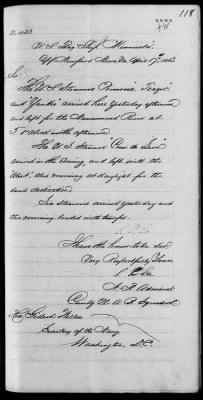 118
U. S. Flag Ship Minnesota
Off Newport News, Va April 17th 1863
Sir
The U. S. Steamers Commodore
and "Yankee" arrived here yesterday afternoon
and left for the Nansemond River at
5 o'clock in the afternoon.
The U. S. Steamer
arrived in the evening, and left with the
"Alert", this morning at daylight for the
Six steamers arrived yesterday and
this morning loaded with troops.
I have the honor to be Sir
Very Respectfully Yours
S. P. Lee
A. R. Admiral
Comdg N. A. B. Squadron
Hon Gideon Welles
Secretary of the Navy
Washington, D.C.